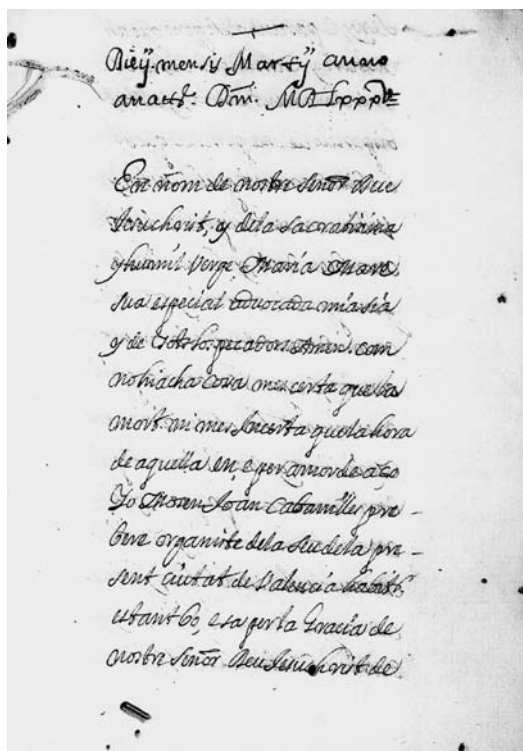 Die ij mensis Martij anno
anatt. Dm. MD
En nom de nostre Señor Deu
Jesuchrist, y de la sacratissima
y humil Verge Maria Mare
sua especial advocada mia sia
y de tots los pecadors Amen. com
no hiacha cosa mes certa que la
mort ni mes Incerta que la hora
de aquella en e per amor de aço
Yo Mosen Joan Cabanilles pre-
bere organiste de la Seu de la pre-
sent ciutat de Valencia habitt.
estant bo, e sa per la Gracia de
nostre Señor Deu Jesuchrist de